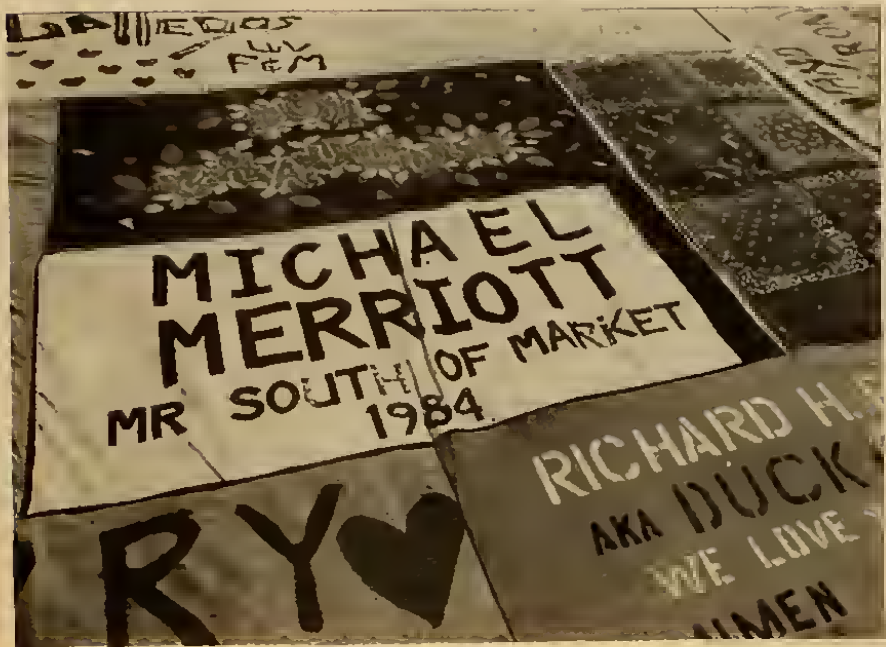 LUV
F&M
MICHAEL
MERRIOTT
MR SOUTH OF MARKET
1984
RY
RICHARD H.
AKA DUCK
WE LOVE